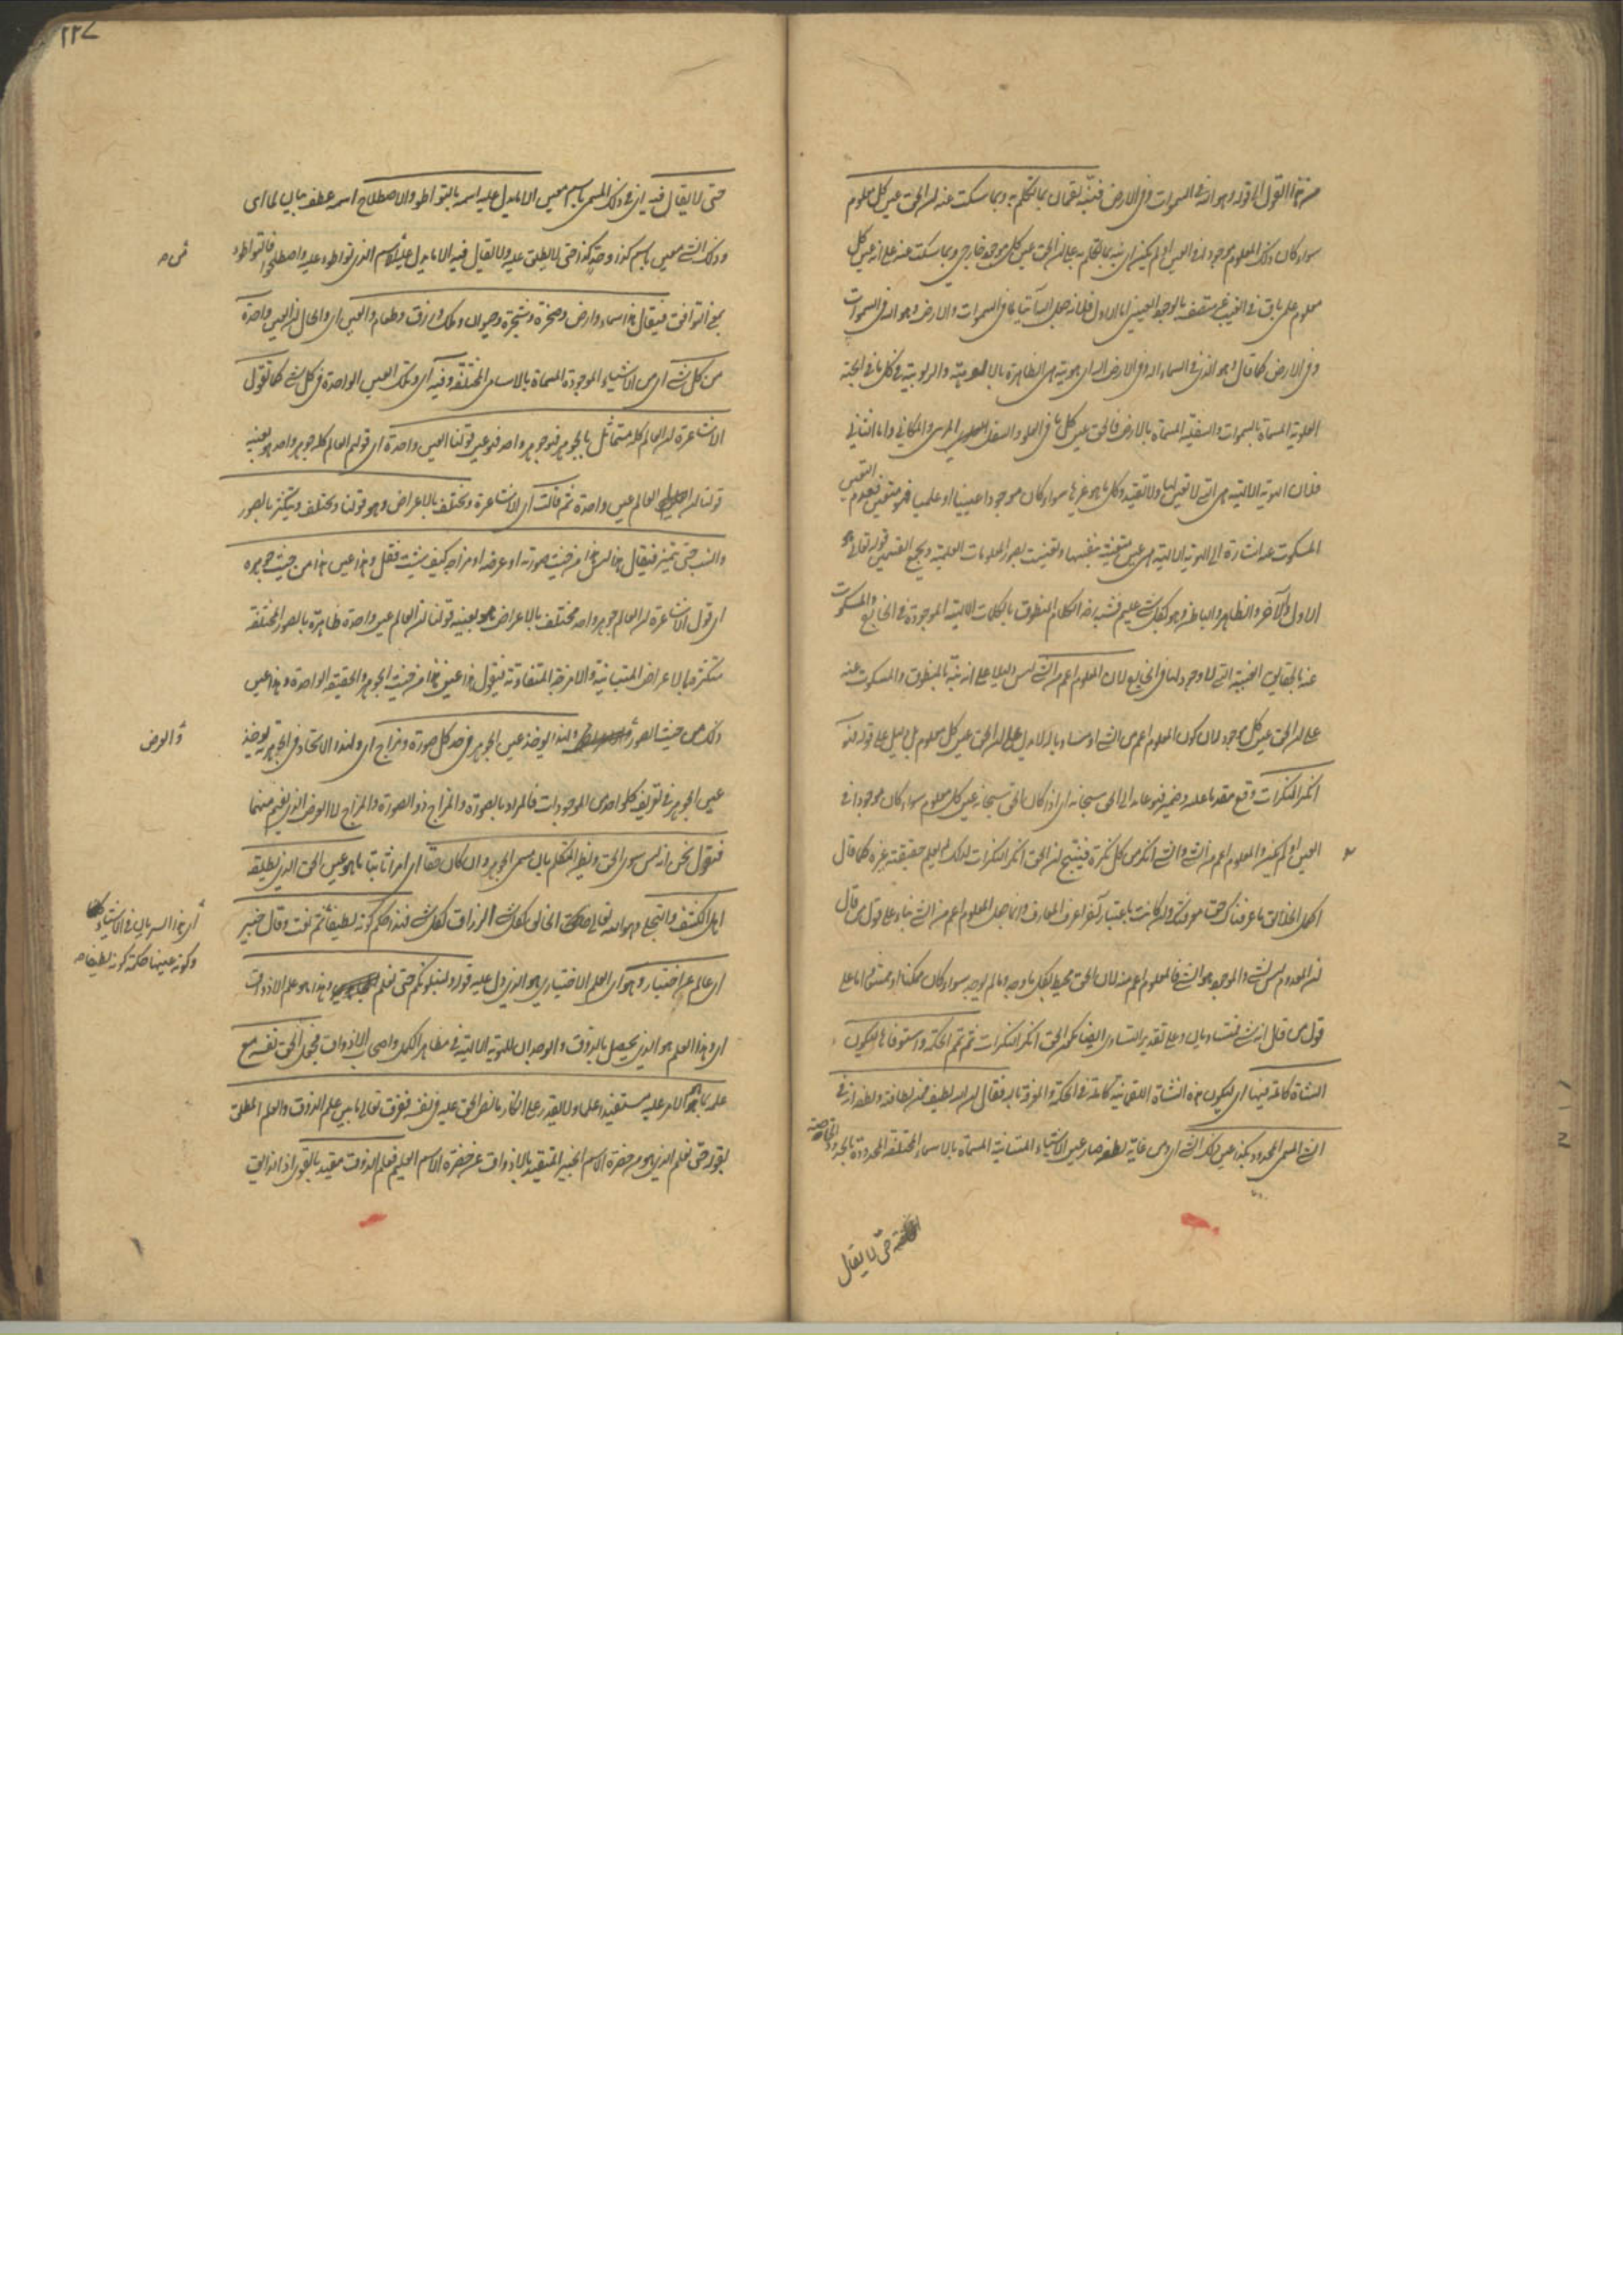 من هذا القول الا قوله وهو الله في السموات وفي الارض فنبه لقمان بما تكلم به وبما سكت عنه ان الحق عين كل معلوم
سواء كان ذلك المعلوم موجودا في العين او لم يكن اي نبه بما تكلم به على ان الحق عين كل موجود خارجي وبما سكت عنه على انه عين كل
معلوم علمي باق في الغيب غير متصف بالوجود العيني اما الاول فلانه جعل الله آتيا بما في السموات والارض وهو الله في السموات
وفي الارض كما قال وهو الذي في السماء اله وفي الارض اله اي هويته هي الظاهرة بالالوهية والربوبية في كل ما في الجهة
العلوية المسماة بالسموات والسفلية المسماة بالارض فالحق عين كل ما في العلو والسفل المرتبي والمكاني واما الثاني
فلان الهوية الالهية هي التي لا تعين لها ولا تقيد وكل ما هو غيرها سواء كان موجودا عينيا او علميا فهو متعين فعدم التعين
المسكوت عنه اشارة الى الهوية الالهية هي عين متعينة بنفسها وتعينت بصور المعلومات العلمية ويجمع القسمين قوله تعالى هو
الاول والآخر والظاهر والباطن وهو بكل شيء عليم فشبه رضي الكلام المنطوق بالكلمات الالهية الموجودة في الخارج والمسكوت
عنه بالحقايق الغيبية التي لا وجود لها في الخارج لان المعلوم اعم من الشيء ليس دليلا على انه نبه بالمنطوق والمسكوت عنه
على ان الحق عين كل موجود لان كون المعلوم اعم من الشيء او مساويا له لا يدل على ان الحق عين كل معلوم بل دليل على قوله فهو
انكر النكرات وقع مقدما عليه وضمير فهو عائد الى الحق سبحانه اي اذا كان الحق سبحانه عين كل معلوم سواء كان موجودا في
العين او لم يكن والمعلوم اعم من الشيء والشيء انكر من كل نكرة فينتج ان الحق انكر النكرات لذلك لم يعلم حقيقته غيره كما قال
اكمل الخلائق ما عرفناك حق معرفتك وان كانت باعتبار آخر اعرف المعارف وانما جعل المعلوم اعم من الشيء بناء على قول من قال
ان المعدوم ليس بشيء والموجود هو الشيء فالمعلوم اعم منه لان الحق محيط بكل ما وجد وما لم يوجد سواء كان ممكنا او ممتنعا اما على
قول من قال انه شيء فمتساويان وعلى تقدير التساوي ايضا يكون الحق انكر النكرات ثم تمم الحكمة واستوفاها لتكون
النشأة كاملة فيها اي لتكون هذه النشأة اللقمانية كاملة في الحكمة والمعرفة بالله فقال ان الله لطيف فمن لطافته ولطفه انه في
الشيء المسمى المحدود بكذا عين ذلك الشيء اي ومن غاية لطفه صار عين الاشياء المتباينة المسماة بالاسماء المختلفة المحدودة بالحدود الخاصة
حتى لا يقال
٢٢٧
حتى لا يقال فيه اي في ذلك المسمى باسم معين الا ما يدل عليه اسمه بالتواطؤ والاصطلاح اسمه عطف بيان لما اي
وذلك الشيء معين باسم كذا وحد كذا حتى لا يطلق عليه ولا يقال فيه الا ما يدل عليه الاسم الذي تواطؤا عليه واصطلحوا فالتواطؤ
بمعنى التوافق فيقال هذا سماء وارض وصخرة وشجرة وحيوان وملك ورزق وطعام والعين اي والحال ان العين واحدة
من كل شيء اي من الاشياء الموجودة المسماة بالاسامي المختلفة وفيه اي وتلك العين الواحدة في كل شيء كما تقول
الاشاعرة ان العالم كله متماثل بالجوهر فهو جوهر واحد فهو عين قولنا العين واحدة اي قولهم العالم كله جوهر واحد هو بعينه
قولنا ان العالم عين واحدة ثم قالت اي الاشاعرة وتختلف بالاعراض وهو قولنا وتختلف وتتكثر بالصور
والنسب حتى تتميز فيقال هذا ليس هذا من حيث صورته او عرضه او مزاجه كيف شئت فقل وهذا عين هذا من حيث جوهره
اي قول الاشاعرة ان العالم جوهر واحد مختلف بالاعراض هو بعينه قولنا ان العالم عين واحدة ظاهرة بالصور المختلفة
متكثرة بالاعراض المتباينة والامزجة المتفاوتة فيقول هذا عين هذا من حيث الجوهر والحقيقة الواحدة وهذا غير
ذلك من حيث الصورة ولهذا يؤخذ عين الجوهر في حد كل صورة ومزاج اي ولهذا الاتحاد في الجوهرية يؤخذ
والعرض
عين الجوهر في تعريف كل واحد من الموجودات فالمراد بالصورة والمزاج ذو الصورة والمزاج لا العرض الذي يفهم منهما
فنقول نحن انه ليس سوى الحق ويظن المتكلم ان مسمى الجوهر وان كان حقا اي امرا ثابتا ما هو عين الحق الذي يطلقه
اهل الكشف والتجلي وهو الله تعالى الخالق لكل شيء الرزاق لكل شيء فهذا حكمة كونه لطيفا ثم نعت وقال خبير
اي هذا السريان في الاشياء
وكونه عينها حكمة كونه لطيفا
اي عالم عن اختبار وهو اي العلم الاختباري هو الذي دل عليه قوله ولنبلونكم حتى نعلم وهذا هو علم الاذواق
اي وهذا العلم هو الذي يحصل بالذوق والوجدان للهوية الالهية في مظاهر الكمل واصحاب الاذواق فجعل الحق نفسه مع
علمه بما هو الامر عليه مستفيدا علما ولا يقدر على انكار ما نص الحق عليه في نفسه ففرق تعالى ما بين علم الذوق والعلم المطلق
بقوله حتى نعلم الذي هو من حضرة الاسم الخبير المتقيد بالاذواق عن حضرة الاسم العليم فعلم الذوق مقيد بالقوى